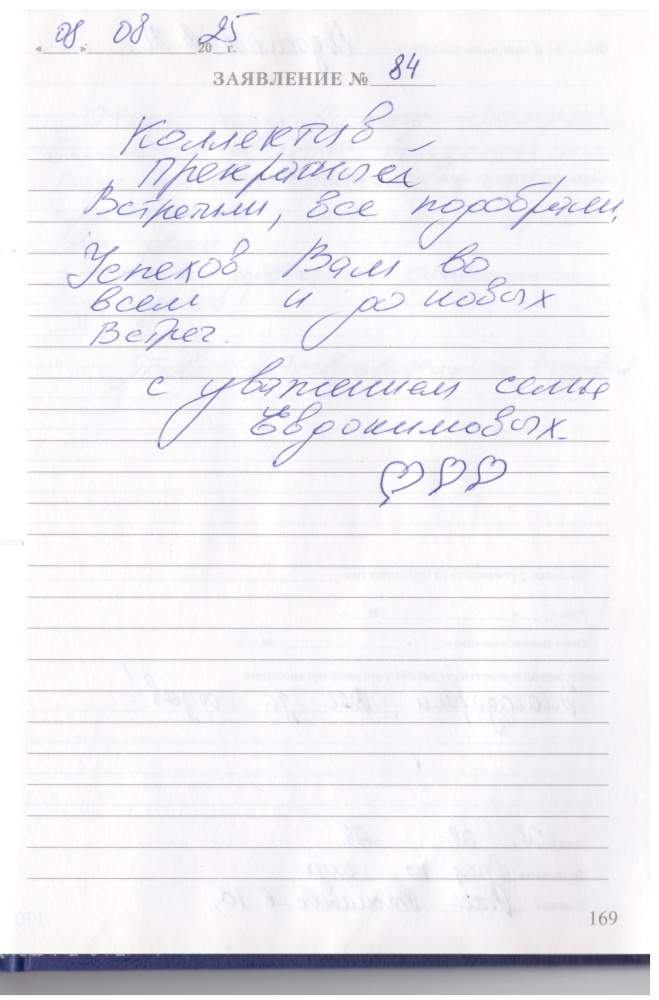 « 08 » 08 2025 г.
ЗАЯВЛЕНИЕ № 84
Коллектив
прекрасный
Встретили, все подобрали,
Успехов Вам во
всем и до новых
Встреч.
с уважением семья
Евдокимовых.
169